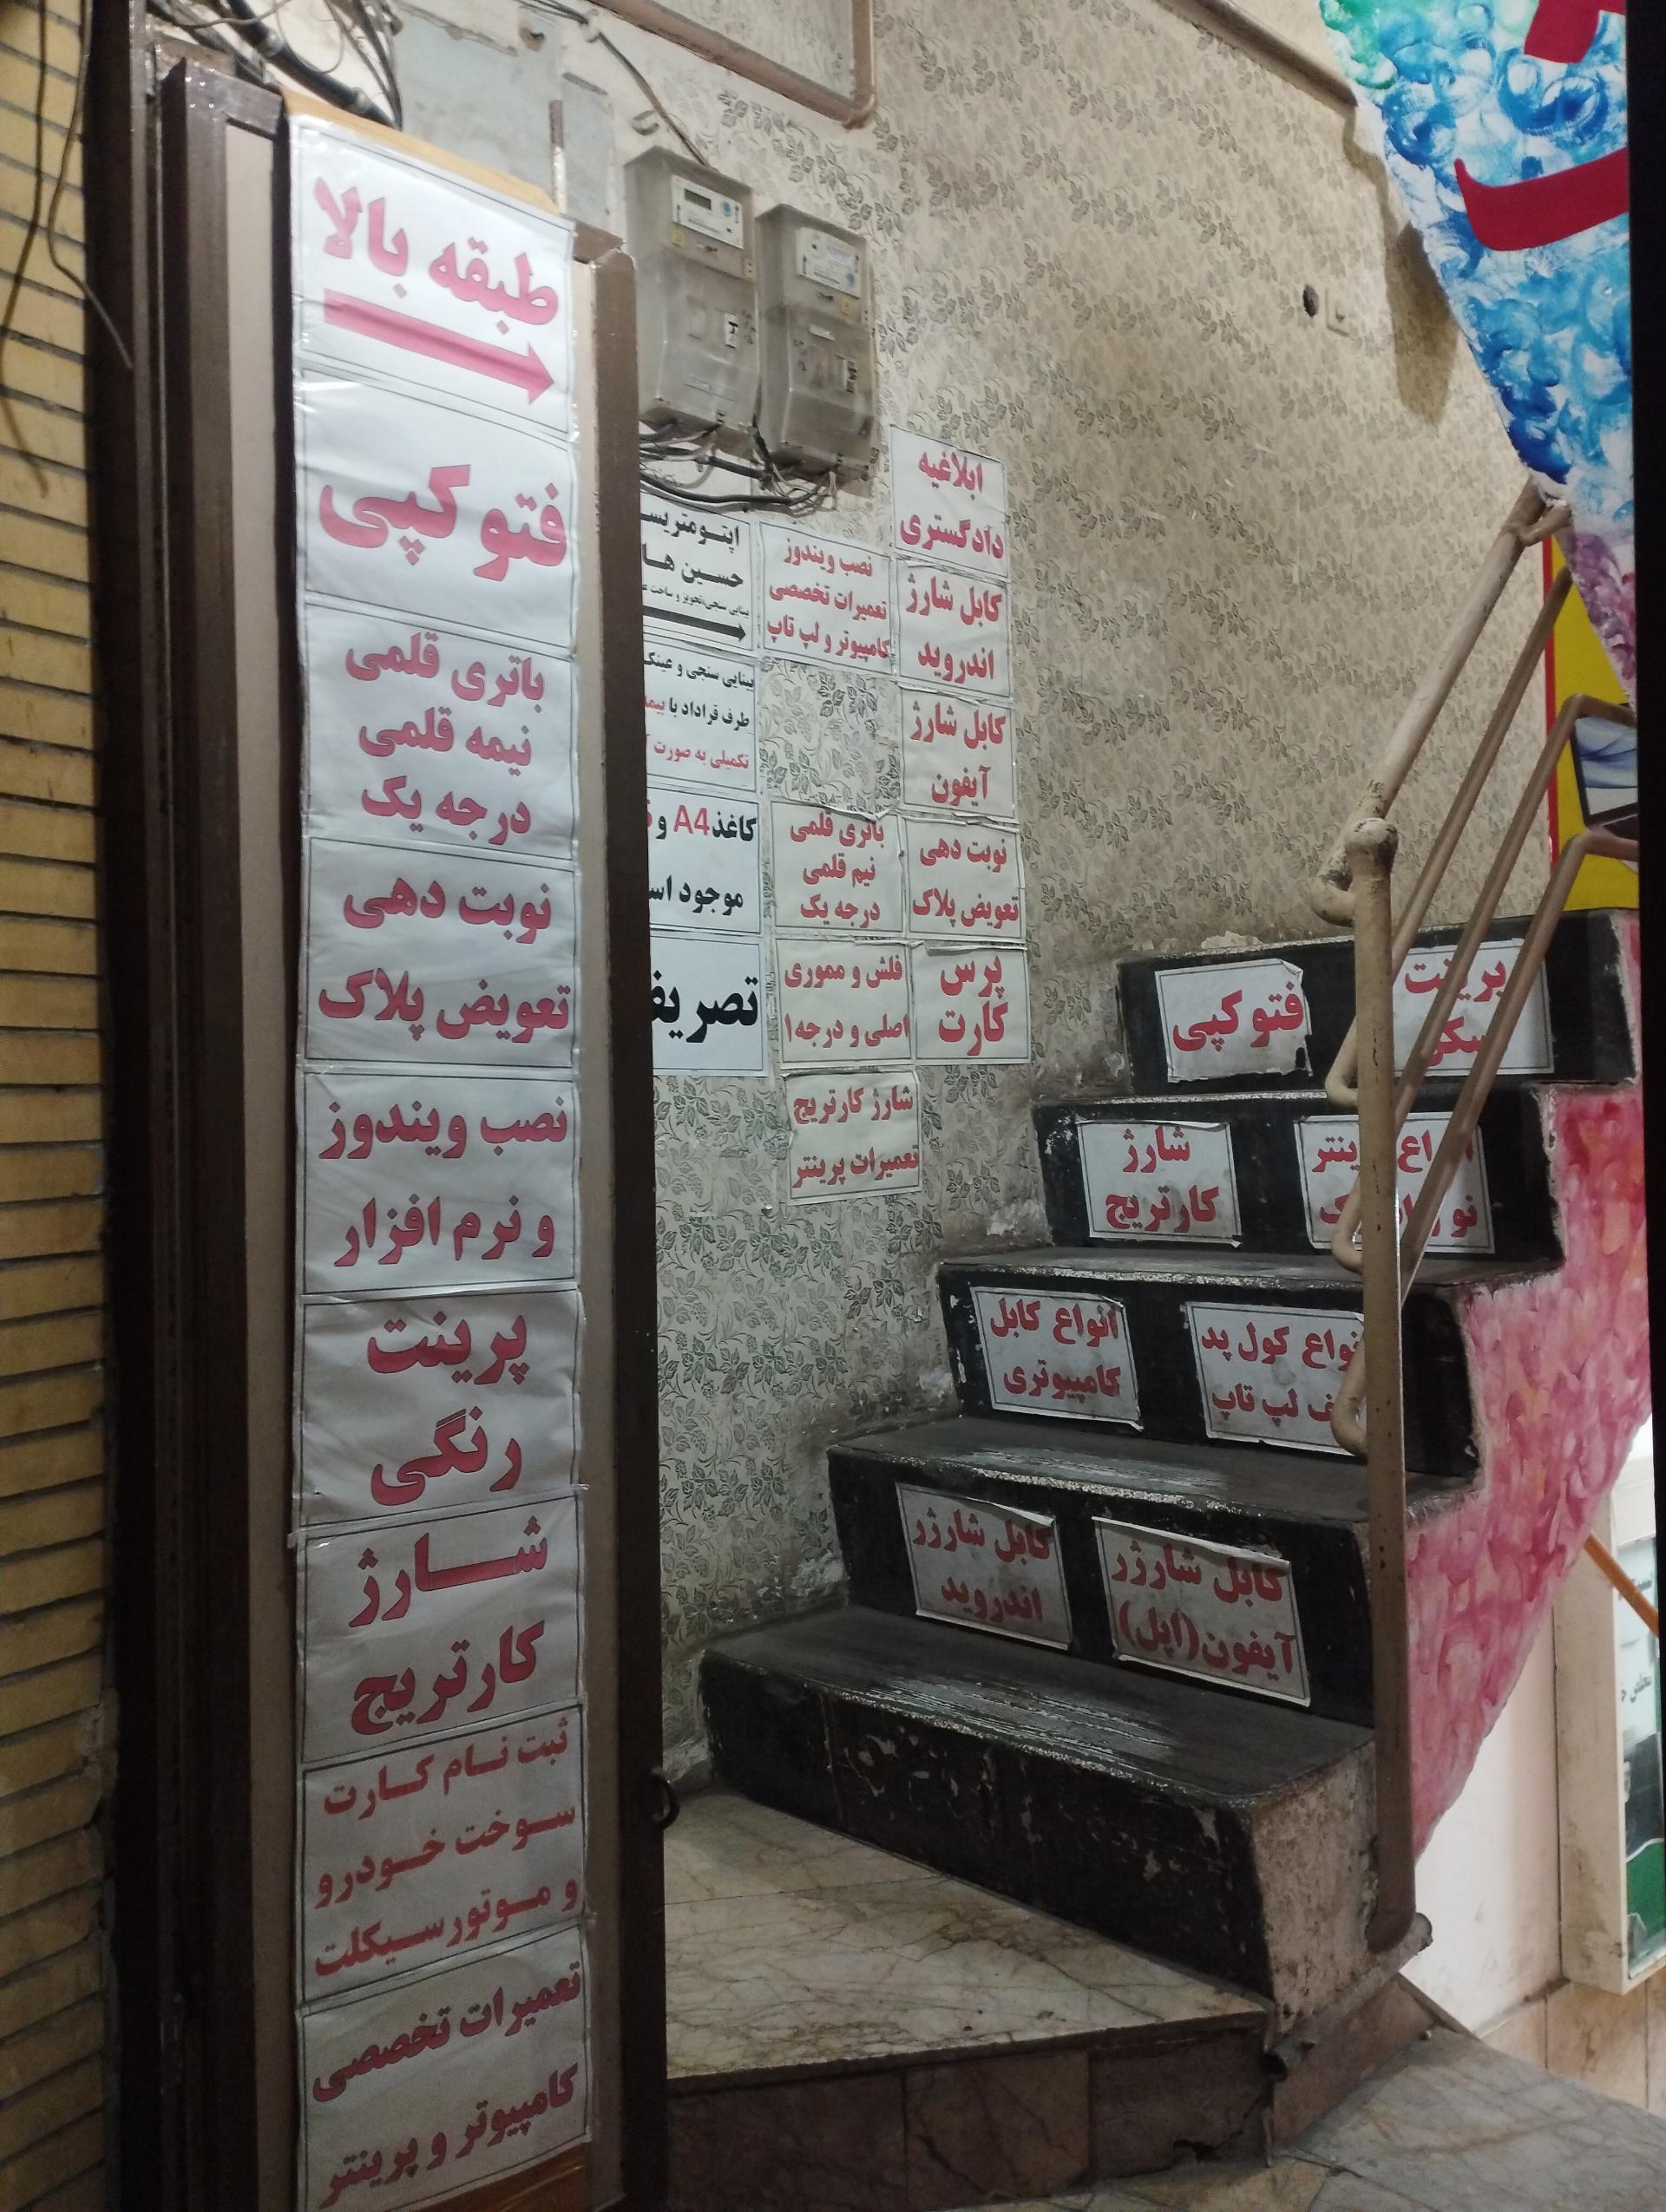 طبقه بالا
فتوکپی
باتری قلمی
نیمه قلمی
درجه یک
نوبت دهی
تعویض پلاک
نصب ویندوز
و نرم افزار
پرینت
رنگی
شارژ
کارتریج
ثبت نام کارت
سوخت خودرو
و موتورسیکلت
تعمیرات تخصصی
کامپیوتر و پرینتر
حسین
بینایی سنجی،تجویز و ساخت
بینایی سنجی و عینک
طرف قراداد با
تکمیلی به صورت
کاغذ A4 و
موجود
نصب ویندوز
تعمیرات تخصصی
کامپیوتر و لپ تاپ
باتری قلمی
نیم قلمی
درجه یک
فلش و مموری
اصلی و درجه۱
شارژ کارتریج
تعمیرات پرینتر
ابلاغیه
دادگستری
کابل شارژ
اندروید
کابل شارژ
آیفون
نوبت دهی
تعویض پلاک
پرس
کارت
فتوکپی
پرینت
شارژ
کارتریج
انواع کابل
کامپیوتری
کول پد
لپ تاپ
کابل شارژر
اندروید
کابل شارژر
آیفون(اپل)